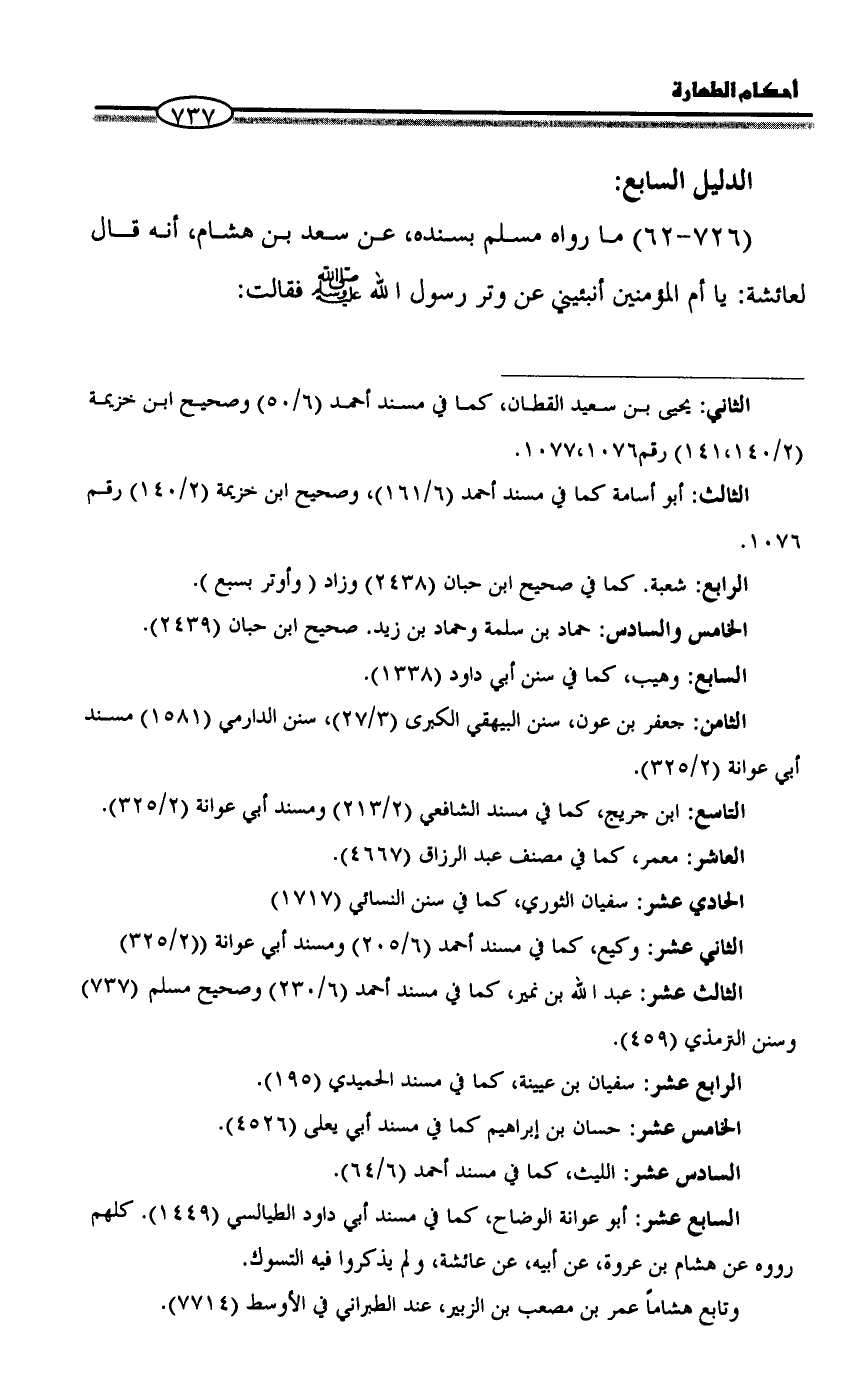 أحكام الطهارة
٧٣٧
الدليل السابع:
(٧٢٦-٦٢) ما رواه مسلم بسنده، عن سعد بن هشام، أنه قال
لعائشة: يا أم المؤمنين أنبئيني عن وتر رسول الله ﷺ فقالت:
الثاني: يحيى بن سعيد القطان، كما في مسند أحمد (٥٠/٦) وصحيح ابن خزيمة
(١٤١،١٤٠/٢) رقم١٠٧٧،١٠٧٦.
الثالث: أبو أسامة كما في مسند أحمد (١٦١/٦)، وصحيح ابن خزيمة (١٤٠/٢) رقم
١٠٧٦.
الرابع: شعبة. كما في صحيح ابن حبان (٢٤٣٨) وزاد ( وأوتر بسبع ).
الخامس والسادس: حماد بن سلمة وحماد بن زيد. صحيح ابن حبان (٢٤٣٩).
السابع: وهيب، كما في سنن أبي داود (١٣٣٨).
الثامن: جعفر بن عون، سنن البيهقي الكبرى (٢٧/٣)، سنن الدارمي (١٥٨١) مسند
أبي عوانة (٣٢٥/٢).
التاسع: ابن جريج، كما في مسند الشافعي (٢١٣/٢) ومسند أبي عوانة (٣٢٥/٢).
العاشر: معمر، كما في مصنف عبد الرزاق (٤٦٦٧).
الحادي عشر: سفيان الثوري، كما في سنن النسائي (١٧١٧)
الثاني عشر: وكيع، كما في مسند أحمد (٢٠٥/٦) ومسند أبي عوانة ((٣٢٥/٢)
الثالث عشر: عبد الله بن نمير، كما في مسند أحمد (٢٣٠/٦) وصحيح مسلم (٧٣٧)
وسنن الترمذي (٤٥٩).
الرابع عشر: سفيان بن عيينة، كما في مسند الحميدي (١٩٥).
الخامس عشر: حسان بن إبراهيم كما في مسند أبي يعلى (٤٥٢٦).
السادس عشر: الليث، كما في مسند أحمد (٦٤/٦).
السابع عشر: أبو عوانة الوضاح، كما في مسند أبي داود الطيالسي (١٤٤٩). كلهم
رووه عن هشام بن عروة، عن أبيه، عن عائشة، ولم يذكروا فيه التسوك.
وتابع هشاماً عمر بن مصعب بن الزبير، عند الطبراني في الأوسط (٧٧١٤).